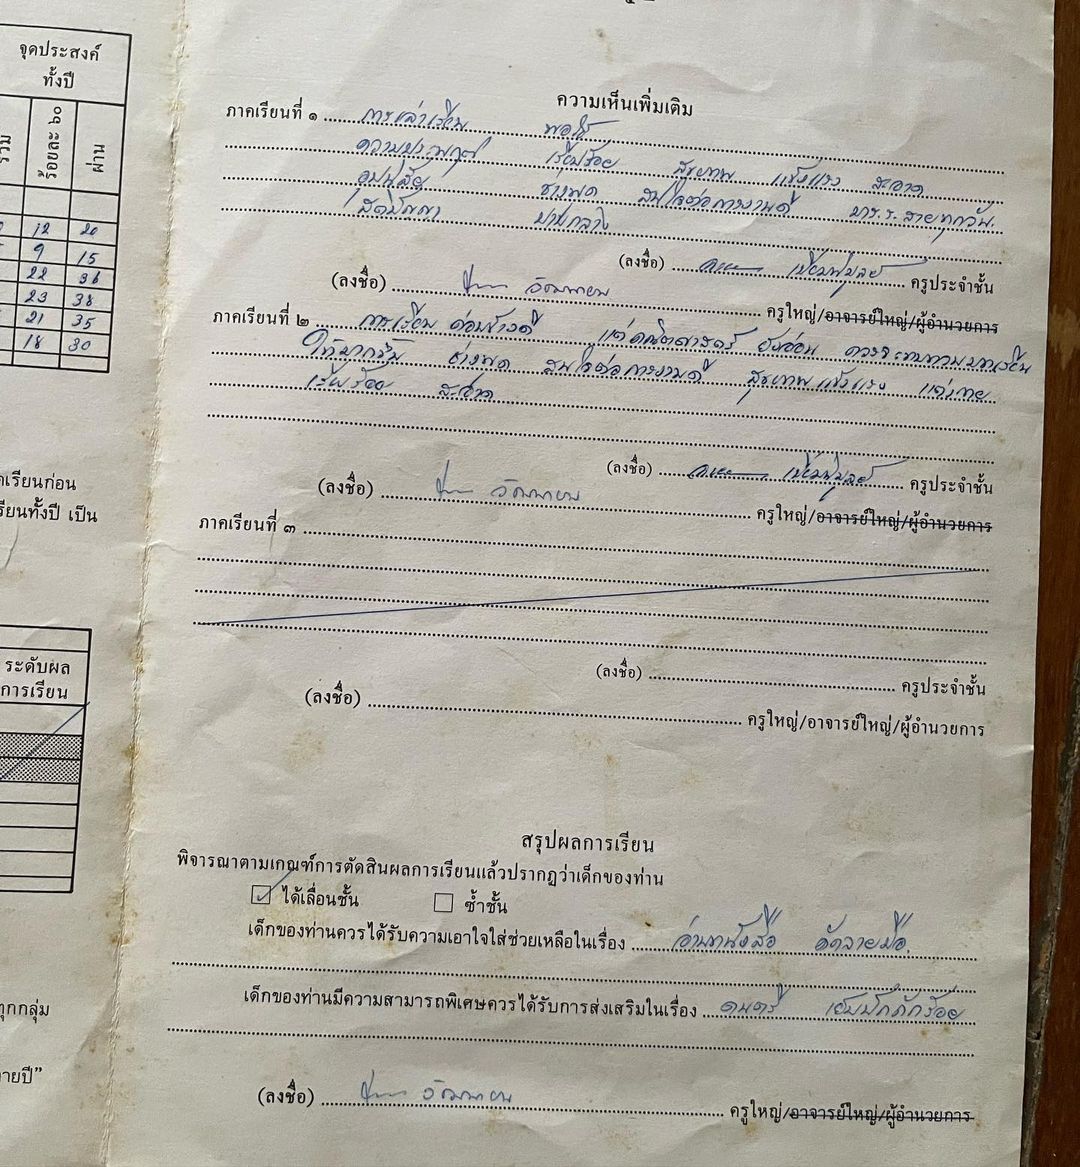 จุดประสงค์
ทั้งปี
รวม
ร้อยละ ๖๐
ผ่าน
12 20
9 15
22 36
23 38
21 35
18 30
เรียนก่อน
เรียนทั้งปี เป็น
ระดับผล
การเรียน
ทุกกลุ่ม
ายปี”
ความเห็นเพิ่มเติม
ภาคเรียนที่ ๑ การเล่าเรียน พอใช้
ความประพฤติ เรียบร้อย สุขภาพ แข็งแรง สะอาด
อุปนิสัย ช่างพูด สนใจต่อการงานดี มาร.ร.สายทุกวัน.
สติปัญญา ปานกลาง
(ลงชื่อ) ครูประจำชั้น
(ลงชื่อ) ครูใหญ่/อาจารย์ใหญ่/ผู้อำนวยการ
ภาคเรียนที่ ๒ การเรียน ค่อนข้างดี แต่คณิตศาสตร์ ยังอ่อน ควรจะทบทวนบทเรียน
ให้มากขึ้น ช่างพูด สนใจต่อการงานดี สุขภาพแข็งแรง แต่งกาย
เรียบร้อย สะอาด
(ลงชื่อ) ครูประจำชั้น
(ลงชื่อ) ครูใหญ่/อาจารย์ใหญ่/ผู้อำนวยการ
ภาคเรียนที่ ๓
(ลงชื่อ) ครูประจำชั้น
(ลงชื่อ) ครูใหญ่/อาจารย์ใหญ่/ผู้อำนวยการ
สรุปผลการเรียน
พิจารณาตามเกณฑ์การตัดสินผลการเรียนแล้วปรากฏว่าเด็กของท่าน
ได้เลื่อนชั้น ซ้ำชั้น
เด็กของท่านควรได้รับความเอาใจใส่ช่วยเหลือในเรื่อง อ่านหนังสือ คัดลายมือ.
เด็กของท่านมีความสามารถพิเศษควรได้รับการส่งเสริมในเรื่อง ดนตรี เย็บปักถักร้อย
(ลงชื่อ) ครูใหญ่/อาจารย์ใหญ่/ผู้อำนวยการ